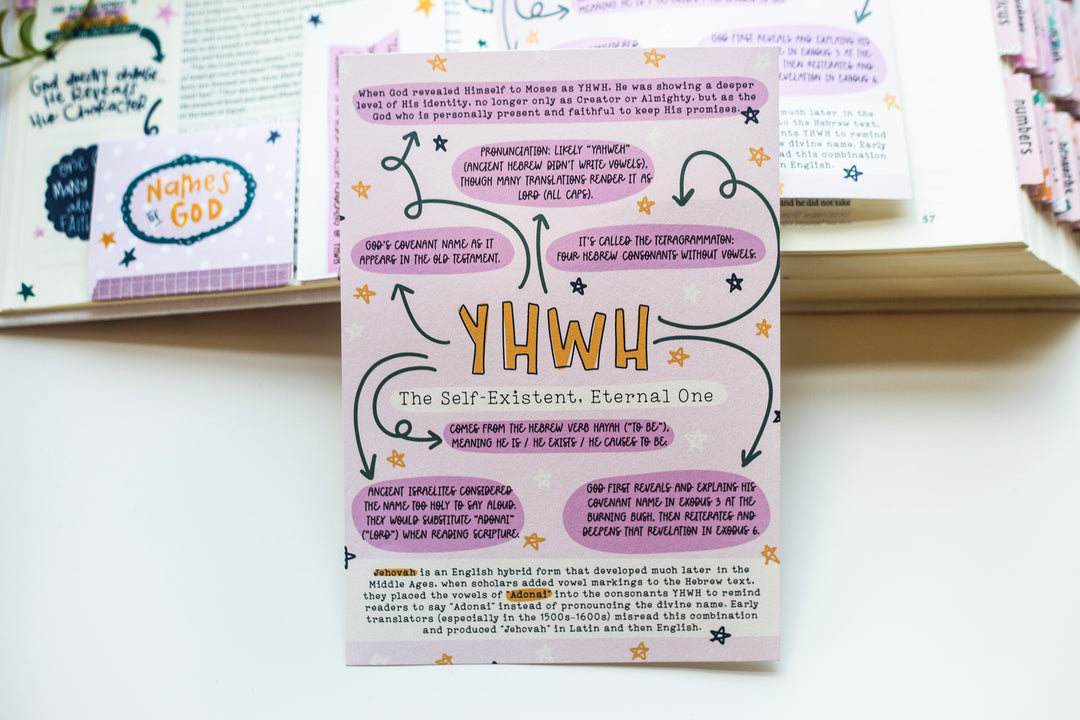 When God revealed Himself to Moses as YHWH, He was showing a deeper
level of His identity, no longer only as Creator or Almighty, but as the
God who is personally present and faithful to keep His promises.
PRONUNCIATION: LIKELY "YAHWEH"
(ANCIENT HEBREW DIDN'T WRITE VOWELS),
THOUGH MANY TRANSLATIONS RENDER IT AS
LORD (ALL CAPS).
GOD'S COVENANT NAME AS IT
APPEARS IN THE OLD TESTAMENT.
IT'S CALLED THE TETRAGRAMMATON:
FOUR HEBREW CONSONANTS WITHOUT VOWELS.
YHWH
The Self-Existent, Eternal One
COMES FROM THE HEBREW VERB HAYAH ("TO BE"),
MEANING HE IS / HE EXISTS / HE CAUSES TO BE.
ANCIENT ISRAELITES CONSIDERED
THE NAME TOO HOLY TO SAY ALOUD.
THEY WOULD SUBSTITUTE "ADONAI"
("LORD") WHEN READING SCRIPTURE.
GOD FIRST REVEALS AND EXPLAINS HIS
COVENANT NAME IN EXODUS 3 AT THE
BURNING BUSH, THEN REITERATES AND
DEEPENS THAT REVELATION IN EXODUS 6.
Jehovah is an English hybrid form that developed much later in the
Middle Ages, when scholars added vowel markings to the Hebrew text,
they placed the vowels of "Adonai" into the consonants YHWH to remind
readers to say "Adonai" instead of pronouncing the divine name. Early
translators (especially in the 1500s-1600s) misread this combination
and produced "Jehovah" in Latin and then English.
God doesn't change
He Reveals
His Character
Names
of
GOD
MEANING HE IS / HE EXISTS / HE CAUSES TO BE.
GOD FIRST REVEALS AND EXPLAINS HIS
IN EXODUS 3 AT THE
THEN REITERATES AND
REVELATION IN EXODUS 6.
much later in the
to the Hebrew text,
YHWH to remind
divine name. Early
this combination
English.
and he did not take
57
numbers